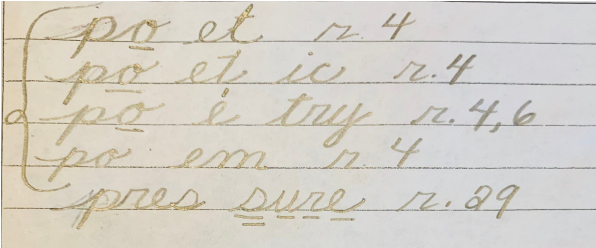 po et r. 4
po et ic r. 4
po e try r. 4, 6
po em r. 4
pres sure r. 29